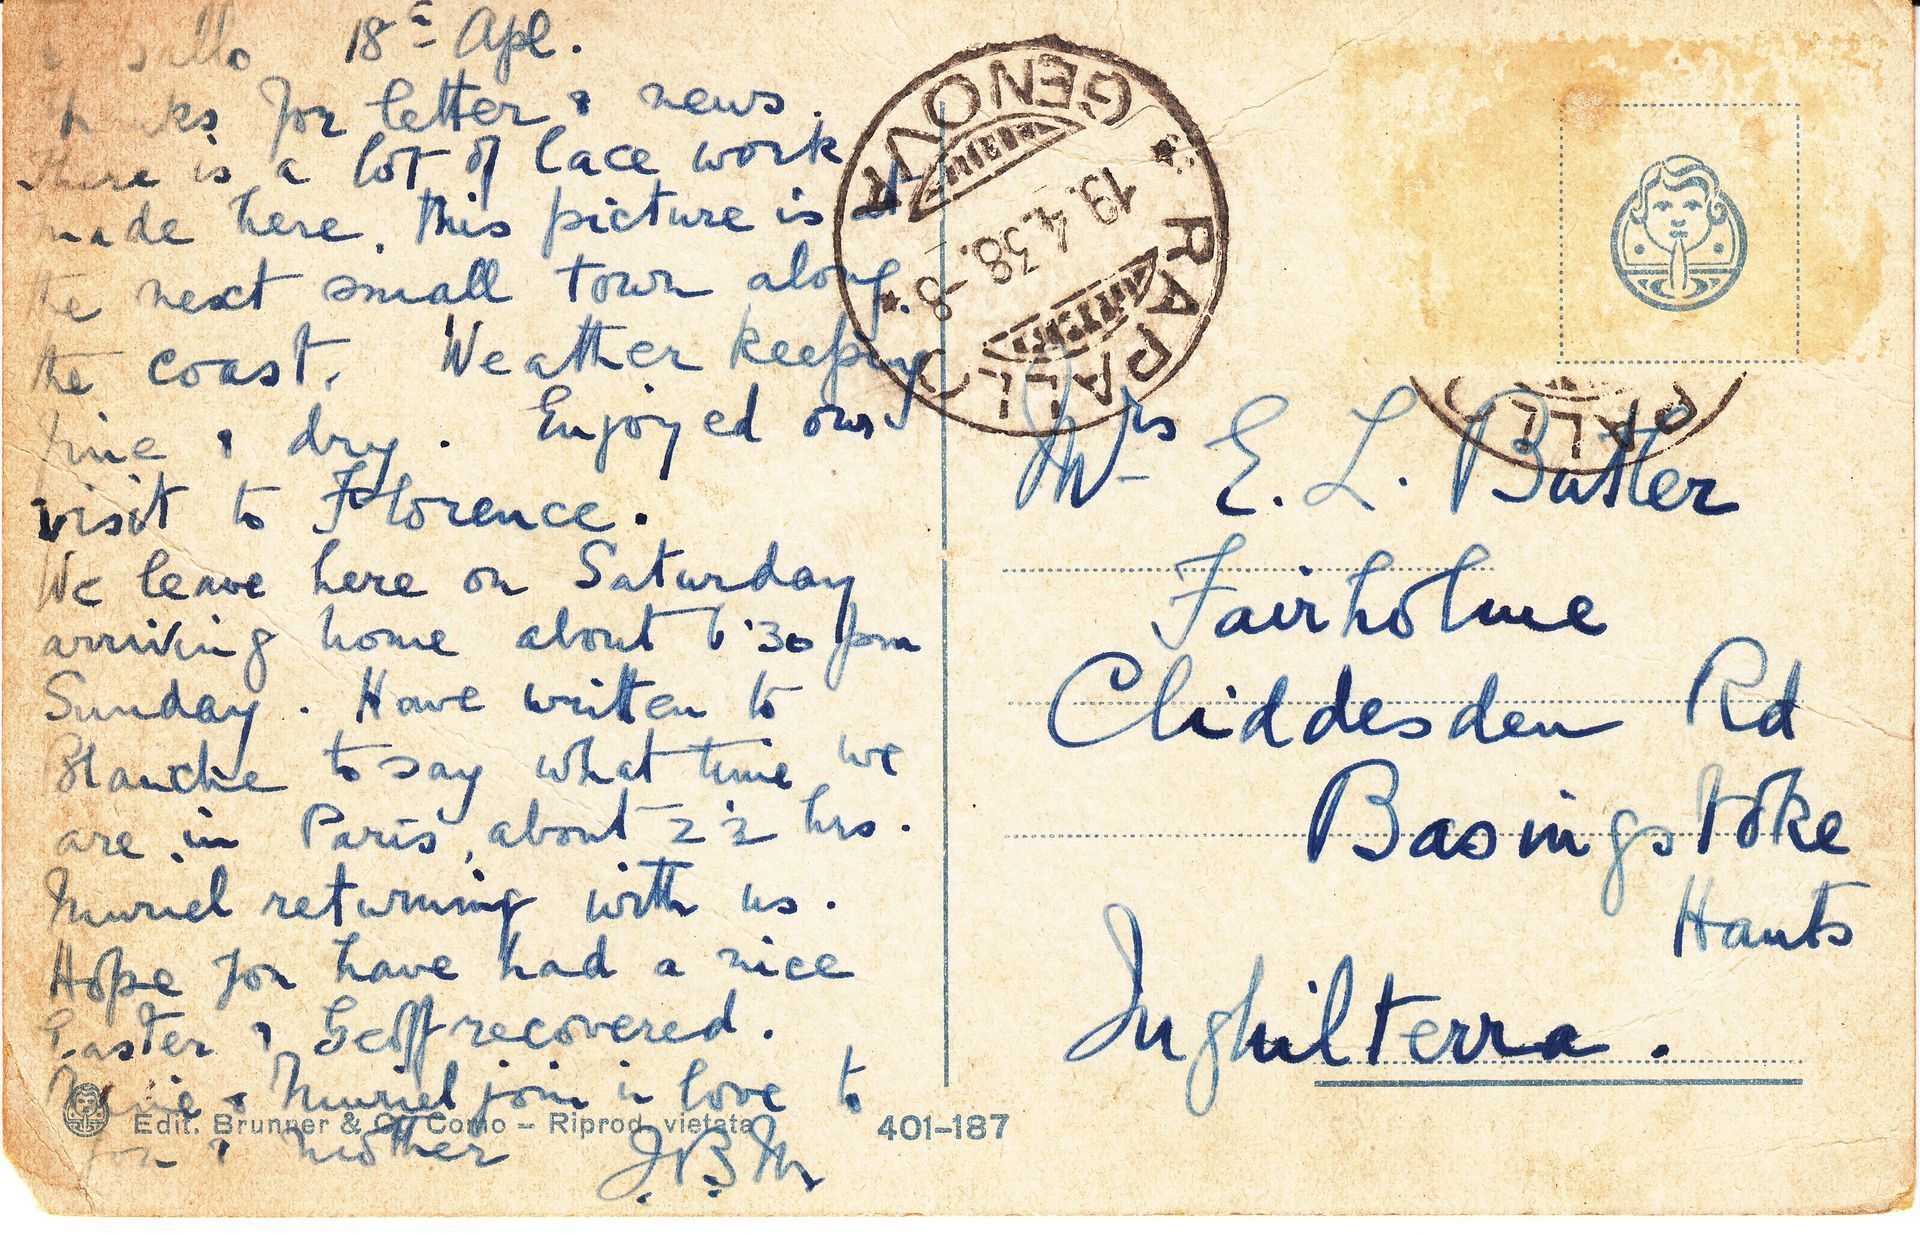 18ᵃ Apl.
Thanks for letter & news.
There is a lot of lace work
made here. This picture is at
the next small town along
the coast. Weather keeping
fine & dry. Enjoyed our
visit to Florence.
We leave here on Saturday
arriving home about 6.30 pm
Sunday. Have written to
Blanche to say what time we
are in Paris, about 2½ hrs.
Muriel returning with us.
Hope you have had a nice
Easter & Geoff recovered.
& Muriel join in love to
you & mother J.B.M
Edit. Brunner & C., Como – Riprod. vietata
401-187
RAPALLO
GENOVA
19.4.38. 8
PALLO
Mrs E. L. Butler
Fairholme
Cliddesden Rd
Basingstoke
Hants
Inghilterra.